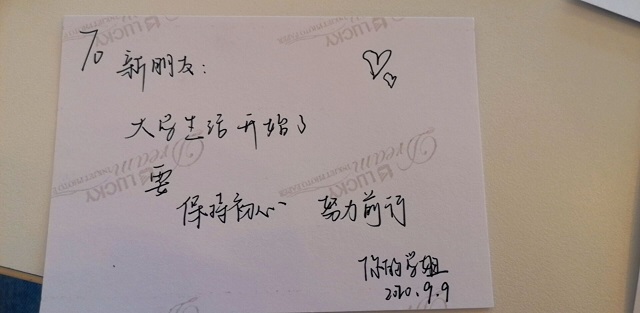 To 新朋友：
大学生活开始了
要
保持初心 努力前行
你的学姐
2020.9.9
LUCKY
Dream
LUCKY
LUCKY